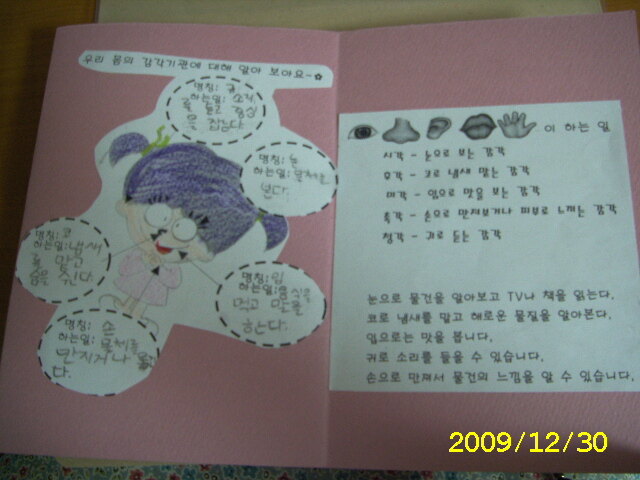 우리 몸의 감각기관에 대해 알아 보아요~☆
명칭: 귀
하는일: 소리
를 듣고 중심
을 잡는다
명칭: 눈
하는일: 물체를
본다.
명칭: 코
하는일: 냄새
를 맡고
숨을 쉰다
명칭: 입
하는일: 음식을
먹고 맛을
본다.
명칭: 손
하는일: 물체를
만지거나
다.
이 하는 일
시각 - 눈으로 보는 감각
후각 - 코로 냄새 맡는 감각
미각 - 입으로 맛을 보는 감각
촉각 - 손으로 만져보거나 피부로 느끼는 감각
청각 - 귀로 듣는 감각
눈으로 물건을 알아보고 TV나 책을 읽는다.
코로 냄새를 맡고 해로운 물질을 알아본다.
입으로는 맛을 봅니다.
귀로 소리를 들을 수 있습니다.
손으로 만져서 물건의 느낌을 알 수 있습니다.
2009/12/30